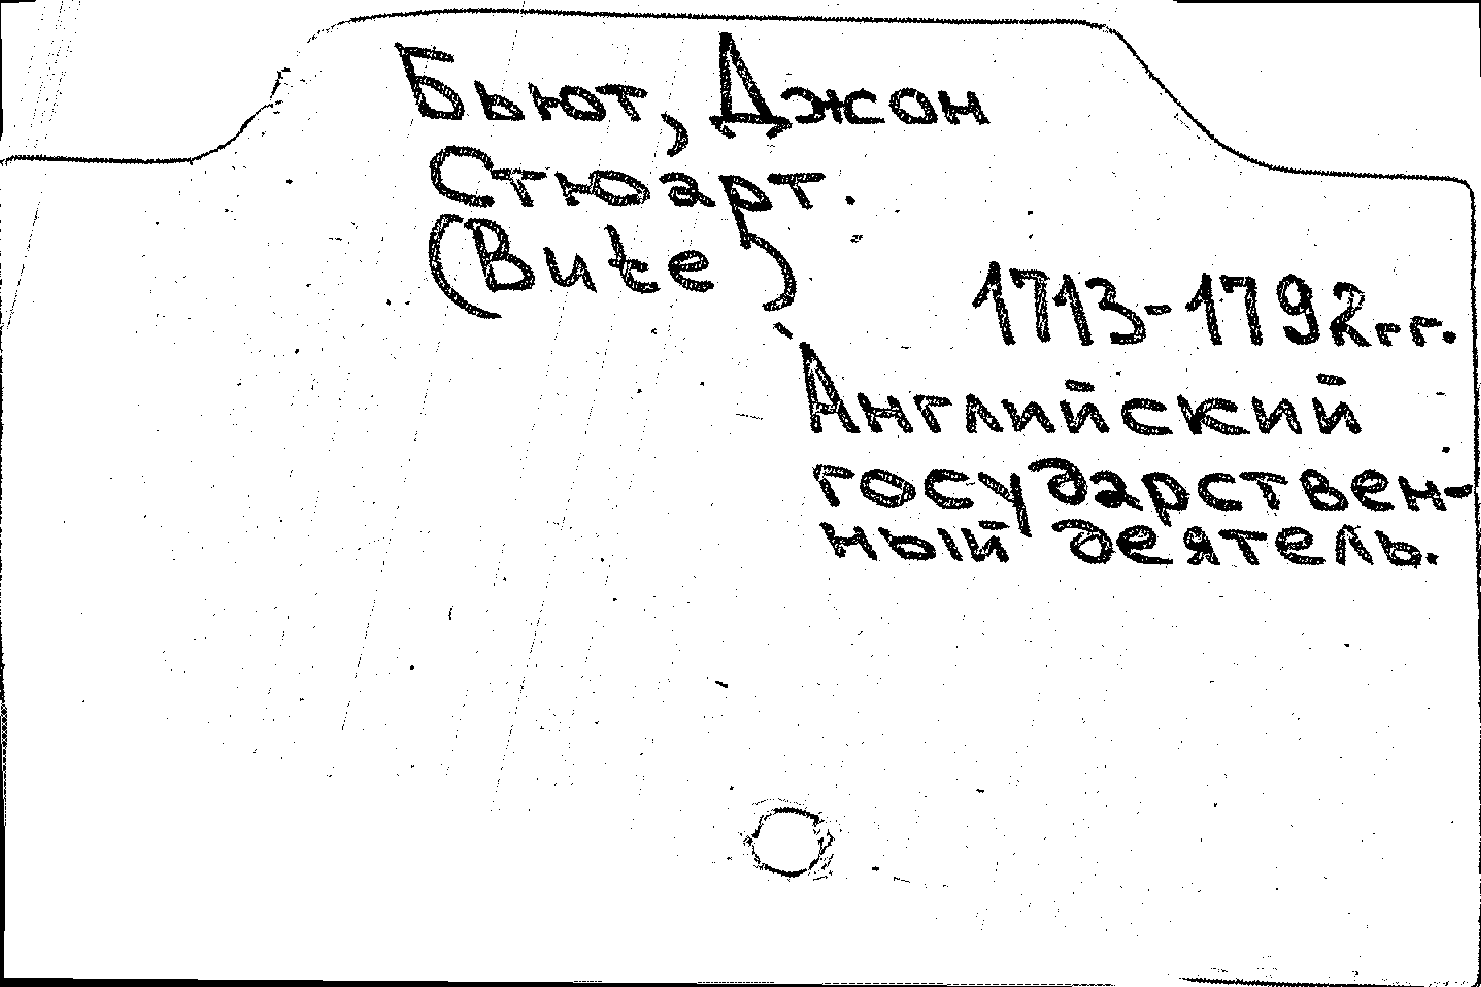 Бьют, Джон
Стюарт.
(Bute)
1713-1792 гг.
Английский
государствен-
ный деятель.